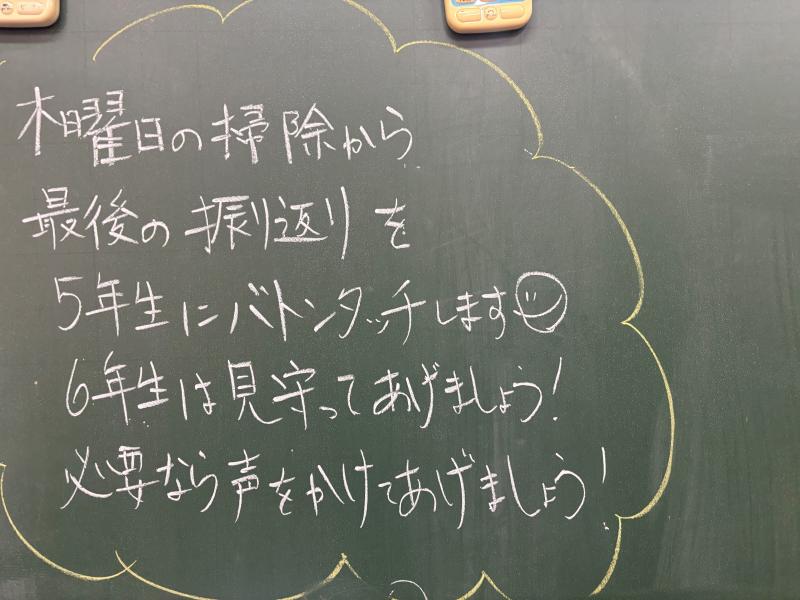 木曜日の掃除から
最後の振り返りを
5年生にバトンタッチします
6年生は見守ってあげましょう!
必要なら声をかけてあげましょう!